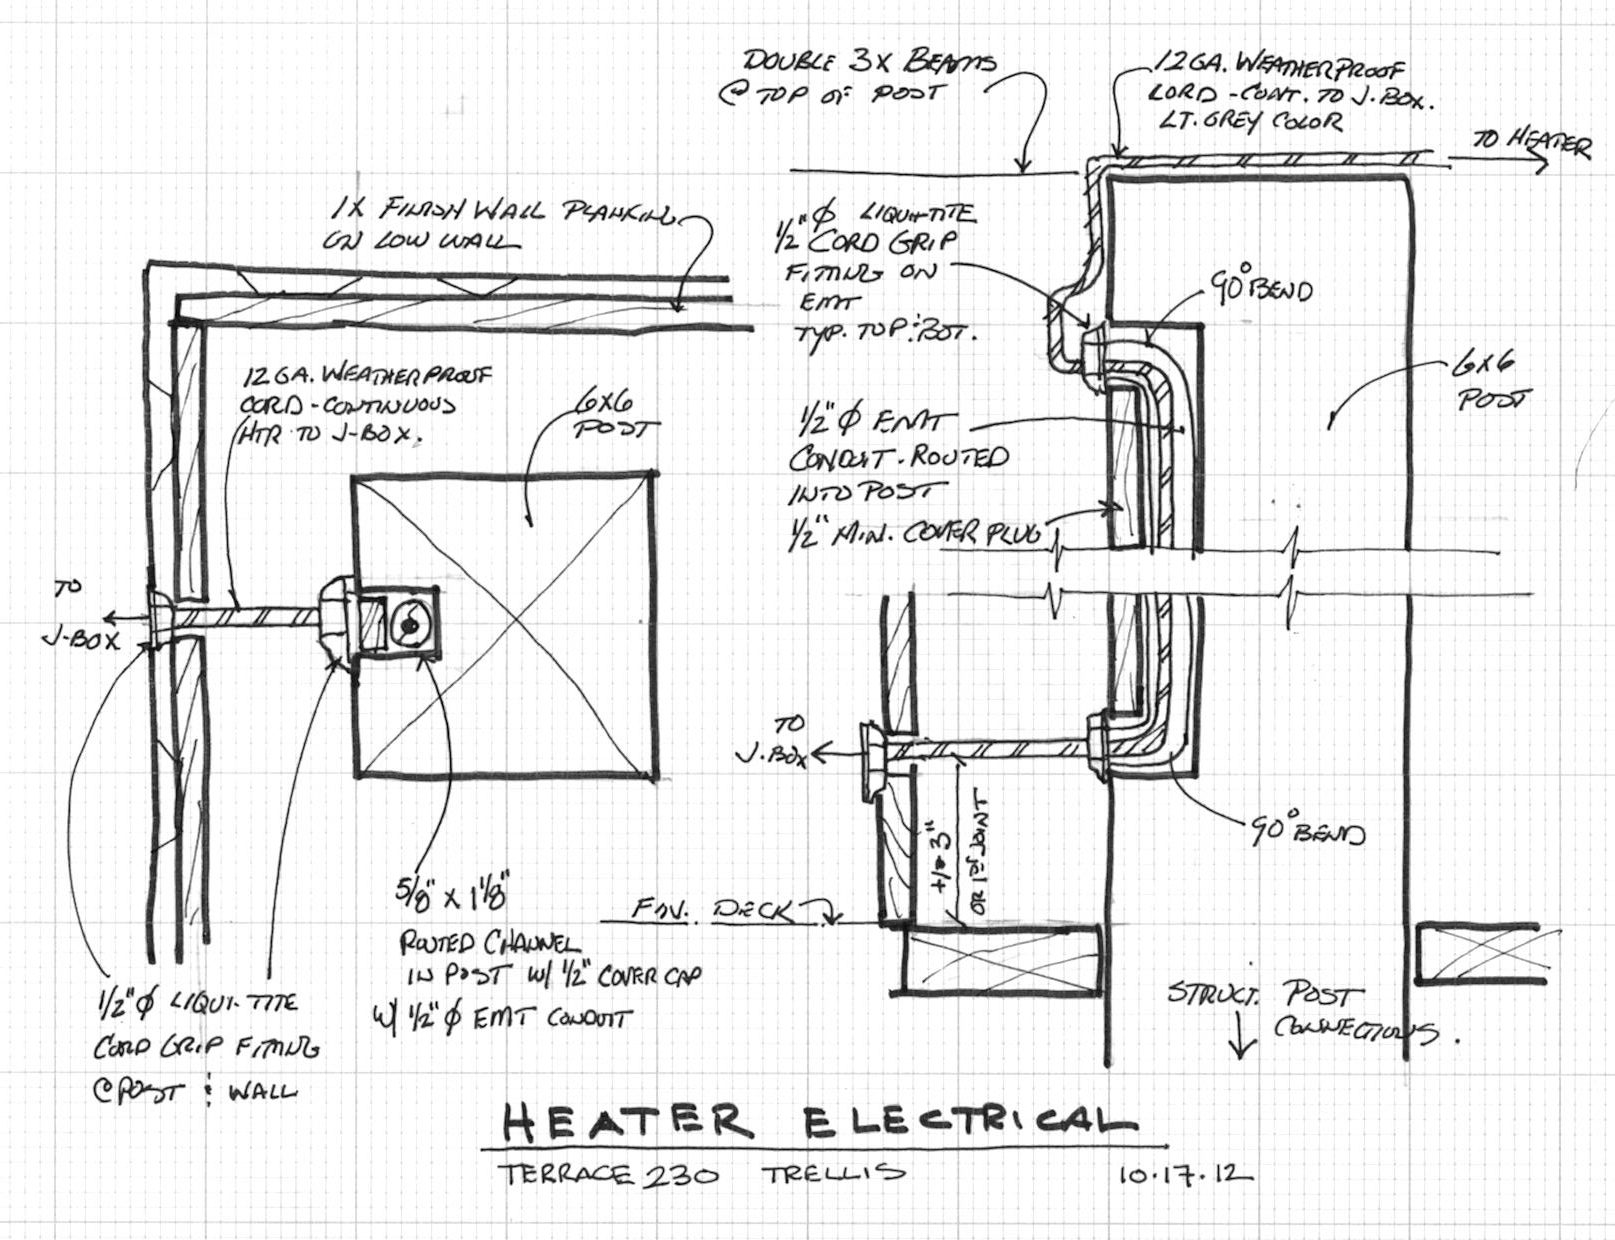 DOUBLE 3X BEAMS
@ TOP OF POST
12 GA. WEATHERPROOF
CORD - CONT. TO J-BOX.
LT. GREY COLOR
TO HEATER
1X FINISH WALL PLANKING
ON LOW WALL
1/2" Ø LIQUI-TITE
1/2" CORD GRIP
FITTING ON
EMT
TYP. TOP & BOT.
90° BEND
12 GA. WEATHERPROOF
CORD - CONTINUOUS
HTR TO J-BOX.
6X6
POST
6X6
POST
1/2" Ø EMT
CONDUIT - ROUTED
INTO POST
1/2" MIN. COVER PLUG
TO
J-BOX
TO
J-BOX
+/- 3"
OR 1ST JOINT
90° BEND
5/8" X 1 1/8"
ROUTED CHANNEL
IN POST W/ 1/2" COVER CAP
W/ 1/2" Ø EMT CONDUIT
FIN. DECK
1/2" Ø LIQUI-TITE
CORD GRIP FITTING
@ POST & WALL
STRUCT. POST
CONNECTIONS.
HEATER ELECTRICAL
TERRACE 230 TRELLIS
10.17.12